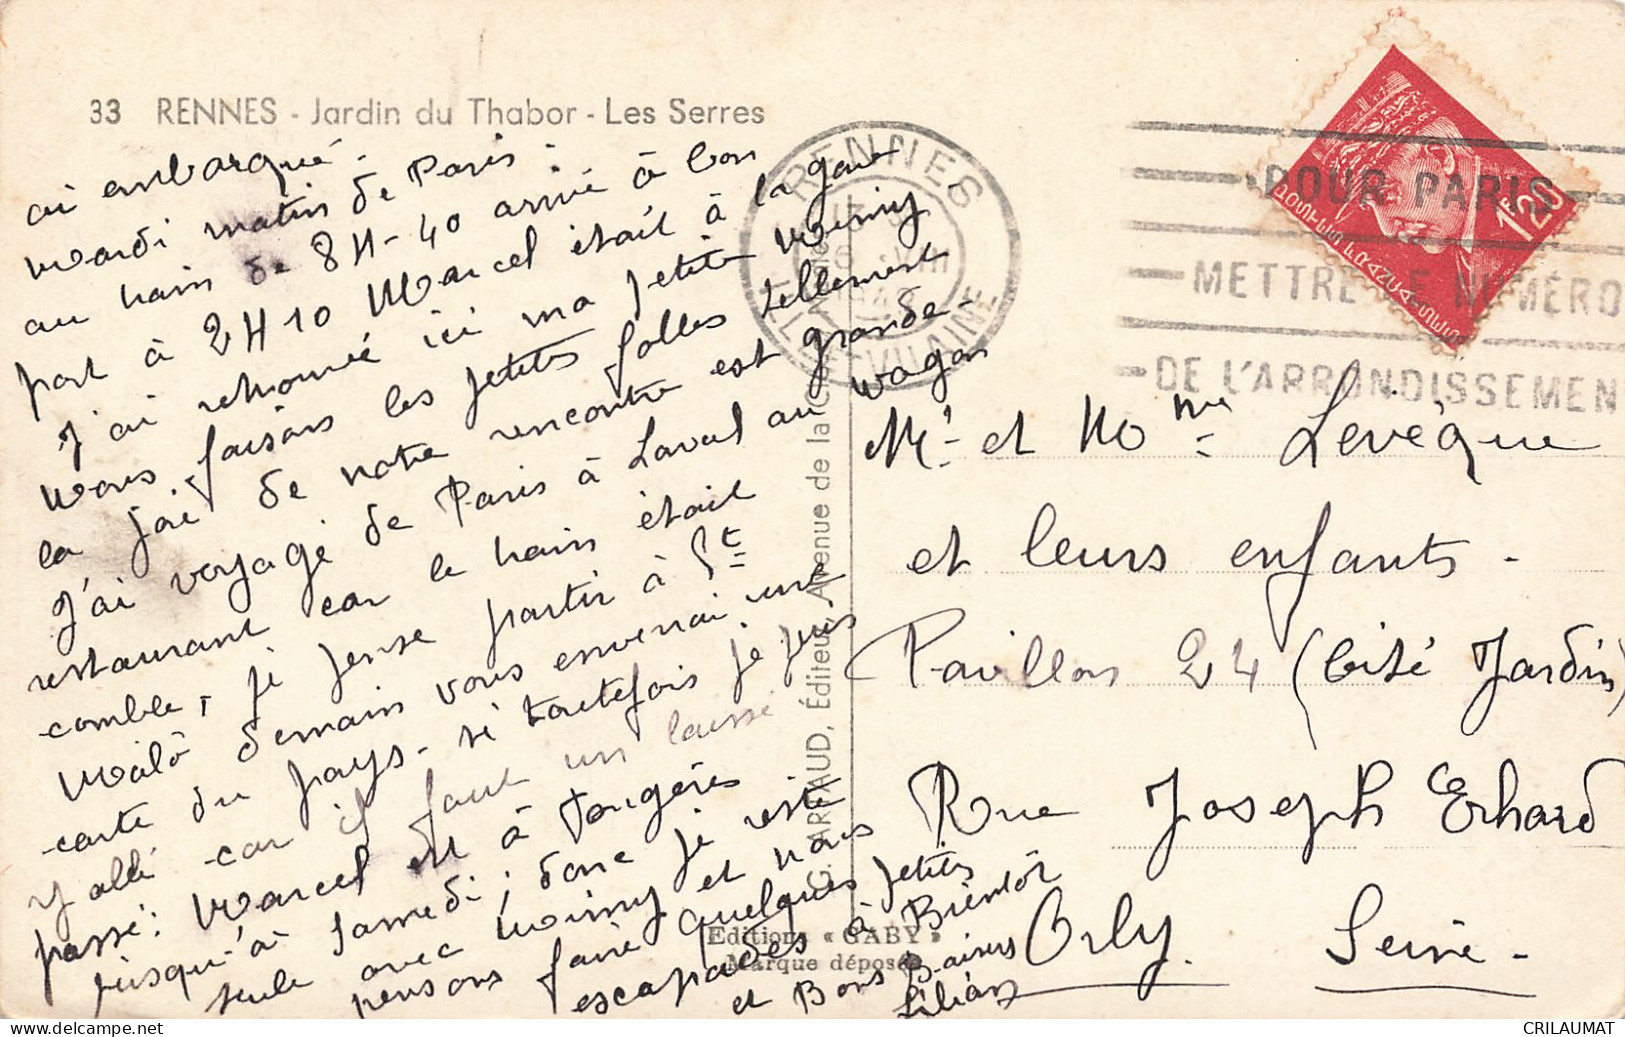 33 RENNES - Jardin du Thabor - Les Serres
ai embarqué -
Mardi matin de Paris -
au train de 8H-40 arrivé à bon
port à 2H10 Marcel était à la gare
J'ai retrouvé ici ma petite Mimy
Nous faisons les petites folles tellement
la joie de notre rencontre est grande -
J'ai voyagé de Paris à Laval au wagon
restaurant car le train était
comble, je pense partir à St
Malô demain vous enverrai une
carte du pays - si toutefois je puis
y allé car il faut un laissé
passé. Marcel est à Fougères
jusqu'à samedi; donc je reste
seule avec Mimy et nous
pensons faire quelques petites
escapades à Bientôt
et Bons Baisers
Liliân
G. ARTAUD, Éditeur, Avenue de la
Editions « GABY »
Marque déposée
RENNES
ILLE-ET-VILAINE
POUR PARIS
METTRE LE NUMÉRO
DE L'ARRONDISSEMEN
POSTES FRANÇAISES
1F20
Mr et Mme Levêque
et leurs enfants -
Pavillon 24 (Cité Jardin)
Rue Joseph Erhard
Orly.
Seine -
CRILAUMAT